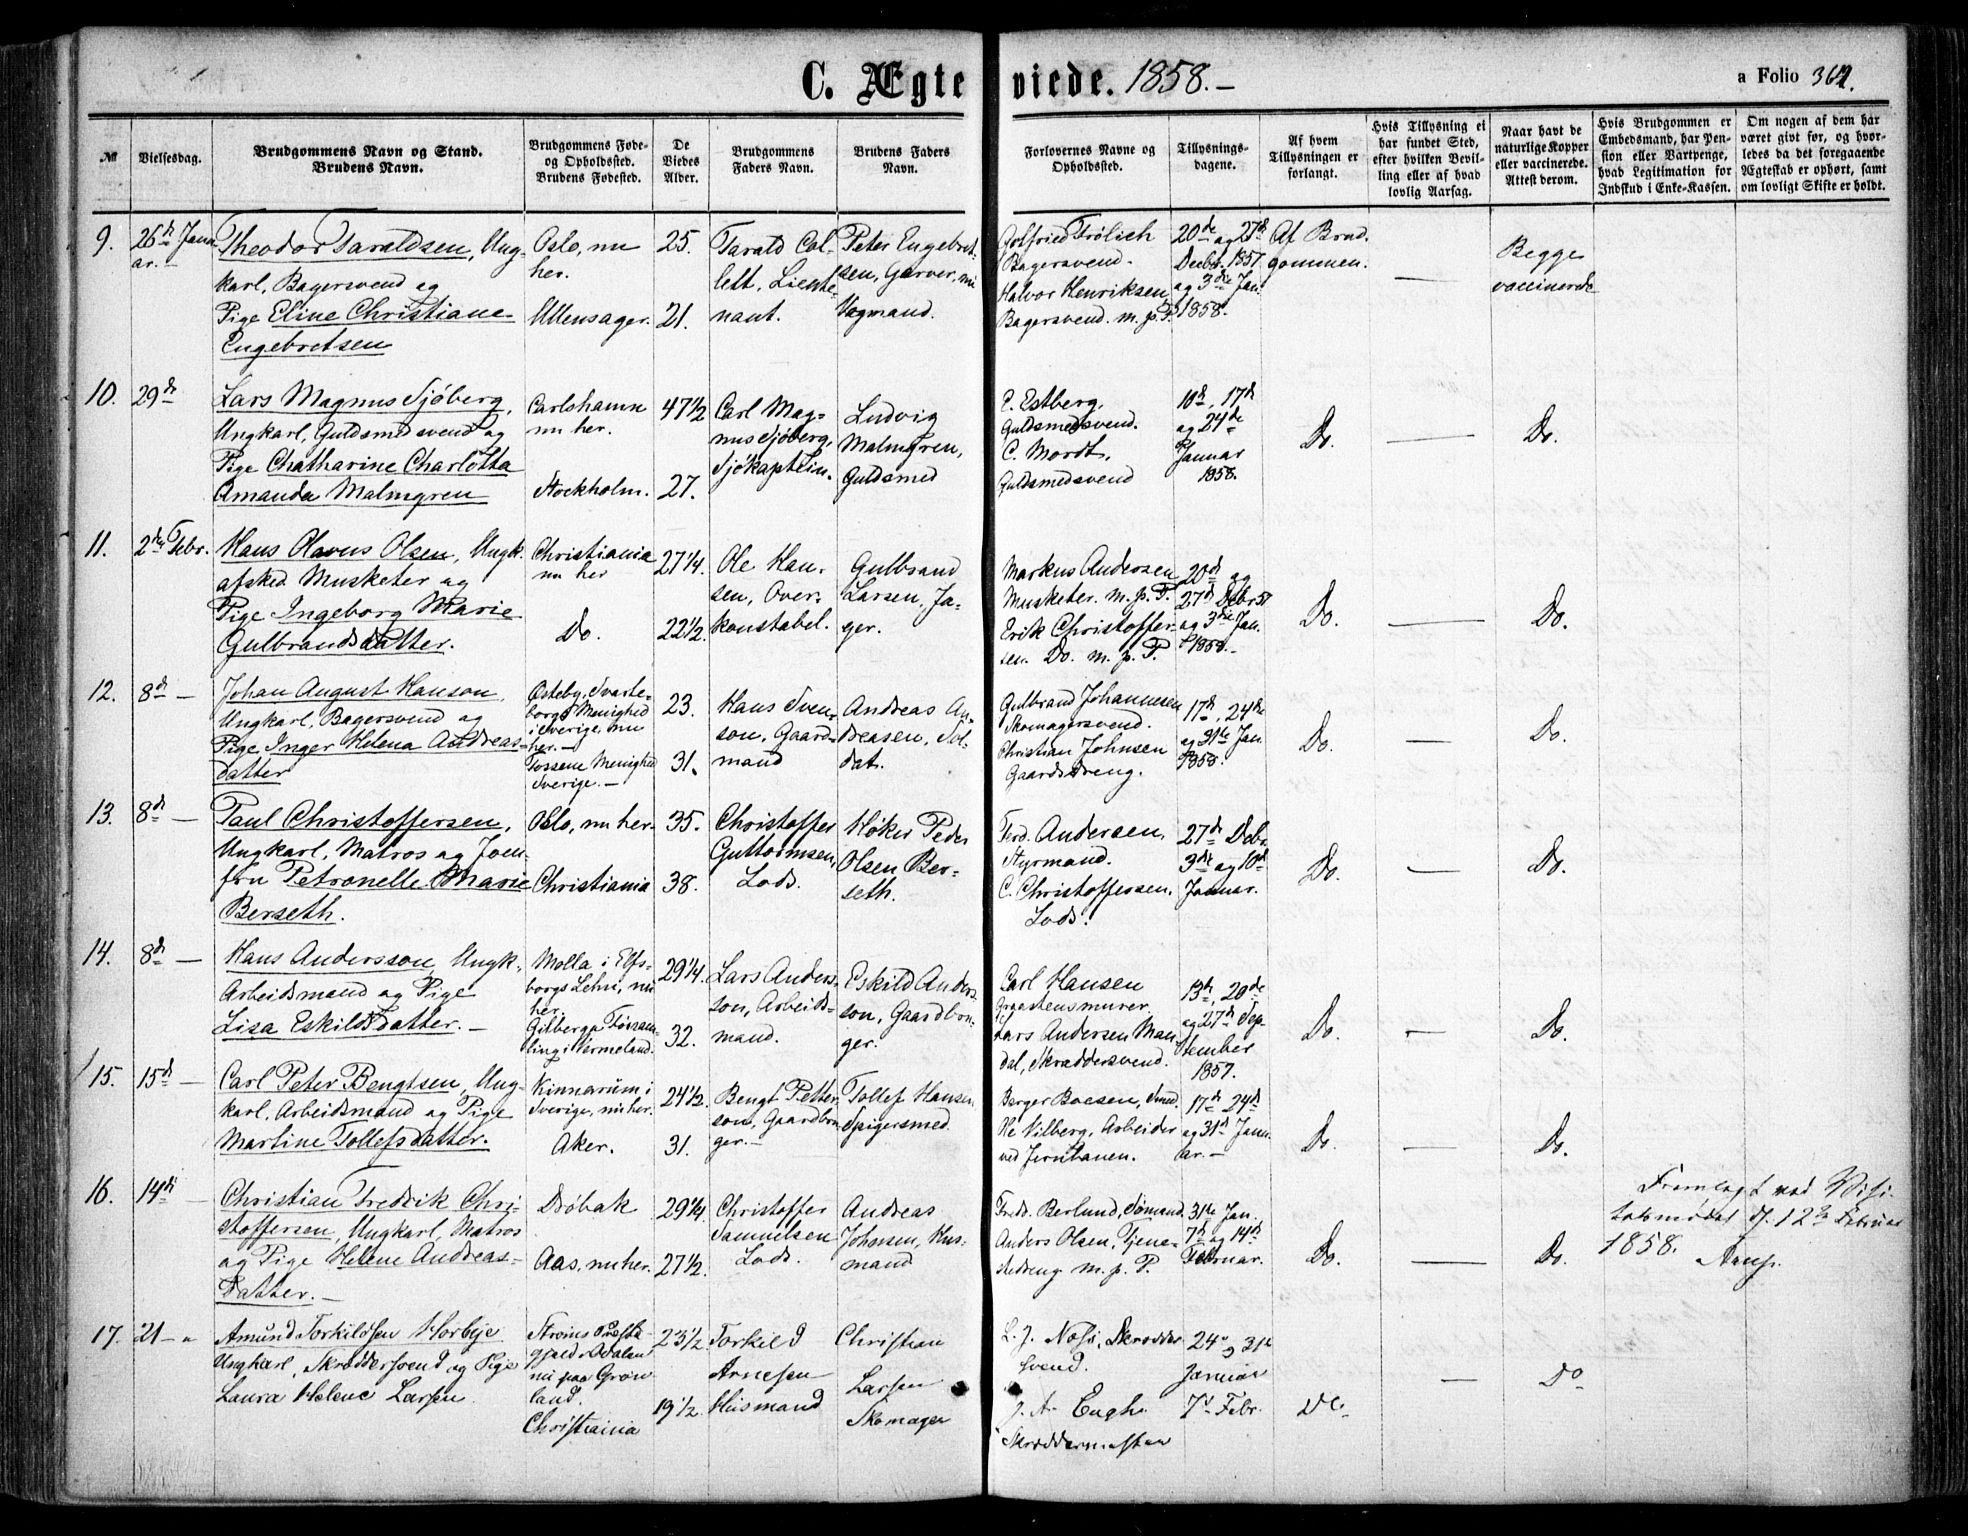 C. Ægteviede. 1858.–
a Folio 361.
№
Vielsesdag.
Brudgommens Navn og Stand.
Brudens Navn.
Brudgommens Føde-
og Opholdssted.
Brudens Fødested.
De
Viedes
Alder.
Brudgommens
Faders Navn.
Brudens Faders
Navn.
Forlovernes Navne og
Opholdssted.
Tillysnings-
dagene.
Af hvem
Tillysningen er
forlangt.
Hvis Tillysning ei
har fundet Sted,
efter hvilken Bevil-
ling eller af hvad
lovlig Aarsag.
Naar havt de
naturlige Kopper
eller vaccinerede.
Attest derom.
Hvis Brudgommen er
Embedsmand, har Pen-
sion eller Vartpenge,
hvad Legitimation for
Indskud i Enke-Kassen.
Om nogen af dem har
været givt før, og hvor-
ledes da det foregaaende
Ægteskab er ophørt, samt
om lovligt Skifte er holdt.
9.
26de Janu
ar.–
Theodor Taraldsen, Ung-
karl, Bagersvend og
Pige Eline Christiane
Engebretsen
Oslo, nu
her.
Ullensager.
25.
21.
Tarald Cal-
lett, Liente-
nant.
Peter Engebret-
sen, Garver, nu
Vogmand.
Gotfried Frölich
Bagersvend.
Halvor Henriksen
Bagersvend. m. p. P.
20de og 27de
Decbr. 1857
og 3die Jan.
1858.
Af Brud-
gommen.
—
Begge
vaccinerede
10.
29de
Lars Magnus Sjöberg,
Ungkarl, Guldsmedsvend og
Pige Chatharine Charlotta
Amanda Malmgren
Carlshamn
nu her.
Stockholm.
47½
27.
Carl Mag-
nus Sjöberg,
Sjökaptein.
Ludvig
Malmgren,
Guldsmed
C. Estberg,
Guldsmedsvend.
C. Mordt,
Guldsmedsvend
10de, 17de
og 24de
Januar
1858.
Do.
—
Do.
11.
2den Febr.
Hans Olavus Olsen, Ungk.
afsked Musketer og
Pige Ingeborg Marie
Gulbrandsdatter.
Christiania
nu her
Do.
27¼.
22½.
Ole Han-
sen, Over-
konstabel.
Gulbrand
Larsen, Ja-
ger.
Markus Andersen
Musketer. m. p. P.
Erik Christoffer-
sen. Do. m. p. P.
20de og
27de Debr 57
og 3die Jan.
1858.–
Do.
—
Do.
12.
8de –
Johan August Hanson,
Ungkarl, Bagersvend og
Pige Inger Helena Andreas-
datter
Østeby, Svarte-
borgs Menighed
i Sverige, nu
her.–
Tossene Menighed
Sverige.–
23.
31.
Hans Sven-
son, Gaard-
mand
Andreas An-
dreasen, Sol-
dat.
Gulbrand Johannesen
Skomagersvend.
Christian Johnsen
Gaardsdreng.
17de, 24de
og 31te Jan.
1858.
Do.
—
Do.
13.
8de –
Paul Christoffersen,
Ungkarl, Matros og Jom-
fru Petronelle Marie
Berseth.
Oslo, nu her.
Christiania
35.
38.
Christoffer
Guttormsen,
Lods.
Høker Peder
Olsen Ber-
seth.
Ferd. Andersen,
Styrmand.
C. Christoffersen.
Lods.
27de Debr.
3die og 10de
Januar.
Do.
—
Do.
14.
8de –
Hans Andersson, Ungk.
Arbeidsmand og Pige
Lisa Eskildsdatter.–
Molla i Elfs-
borgs Lehn, nu
her.
Gilberga Försam-
ling i Vermeland.
29¼.
32.
Lars Anders-
son, Arbeids-
mand.
Eskild Anders-
son, Gaardbru-
ger.
Carl Hansen
Graastensmurer
Lars Andersen Man-
dal, Skræddersvend.
13de, 20de
og 27de Sep-
tember
1857.
Do.
—
Do.
15.
15de –
Carl Peter Bengtsen, Ung-
karl, Arbeidsmand og Pige
Martine Tollefsdatter.
Kinnarum i
Sverige, nu her.
Aker.
24½.
31.
Bengt Petter-
son, Gaardbru-
ger.–
Tollef Hansen
Spigersmed.
Berger Boesen, Smed.
Ole Vilberg, Arbeider
ved Jernbanen.
17de 24de
og 31te Janu-
ar.–
Do.
—
Do.
16.
14de –
Christian Fredrik Chri-
stoffersen, Ungkarl, Matros
og Pige Helene Andreas-
Datter.–
Drøbak
Aas, nu her.
29¼.
27½.
Christoffer
Samuelsen
Lods.
Andreas
Johansen, Hus-
mand
Fredr. Berlund, Sømand,
Anders Olsen, Tjene-
stedreng m. p. P.
31te Jan.
7de og 14de
Februar.
Do.
—
Do.
Fremlagt ved Visi-
tatsmødet d. 12te Februar
1858.
17.
21 – "
Amund Torkildsen Horbye
Ungkarl, Skræddersvend og Pige
Laura Helene Larsen
Strøms Præste-
gjeld i Adalen
nu paa Grøn
land.
Christiania
23½.
19½.
Torkild
Arnesen
Husmand
Christian
Larsen
Skomager
L. J. Noss, Skrædder
svend.
J. A. Engh.
Skræddermester
24 og 31te
Januar
7de Febr.
Do.
—
Do